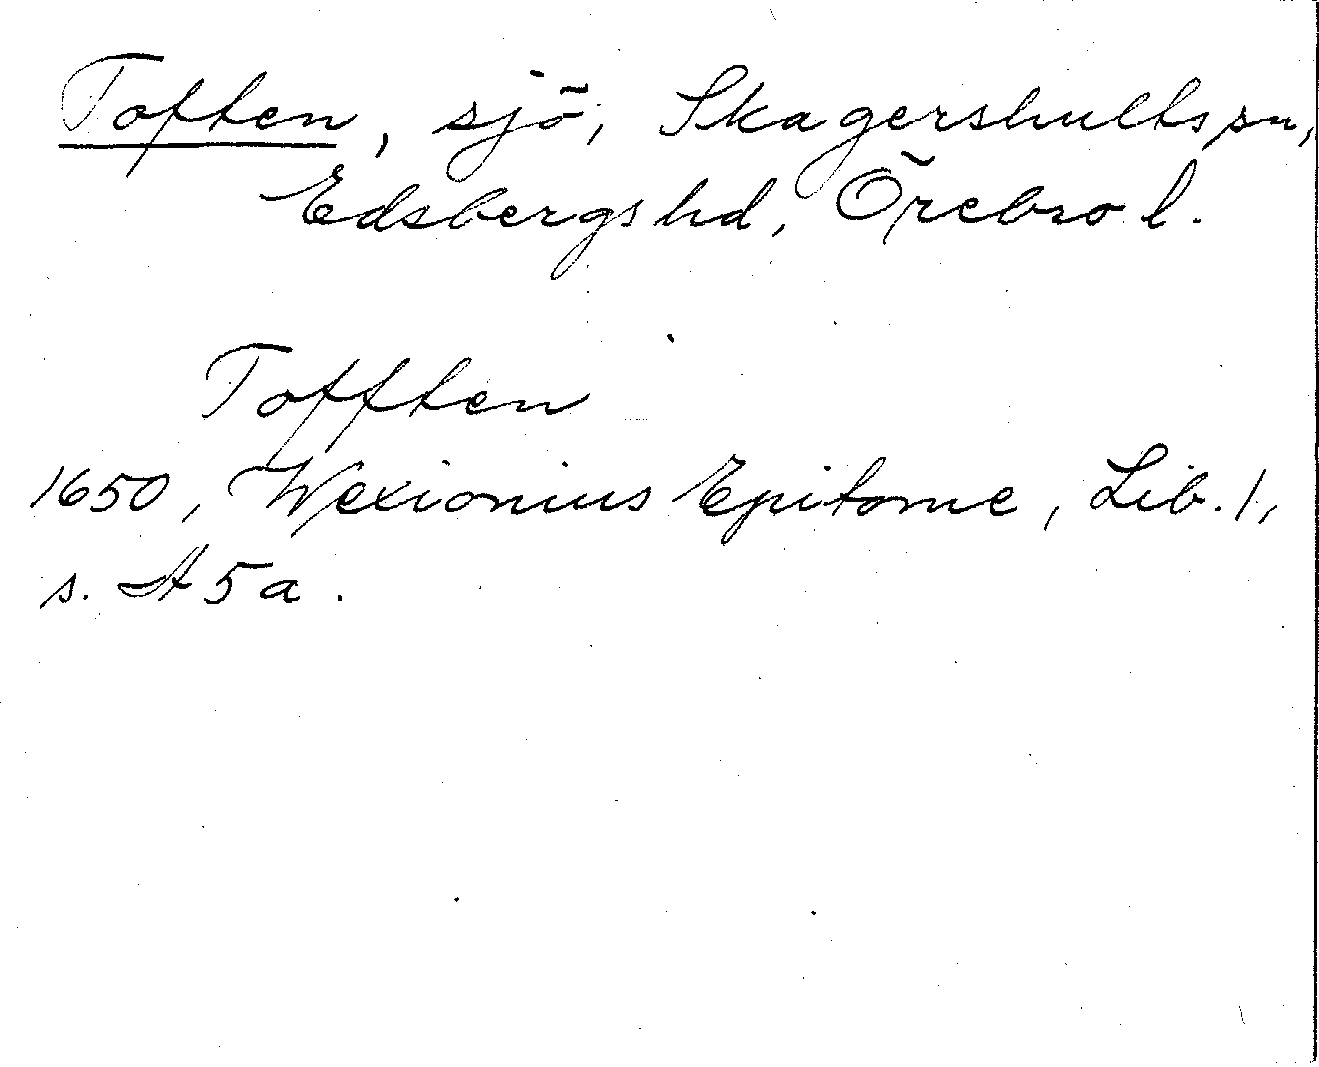 Toften, sjö, Skagershults sn,
Edsbergs hd, Örebro l.
Tofften
1650, Wexionius Epitome, Lib. 1,
s. A 5 a.